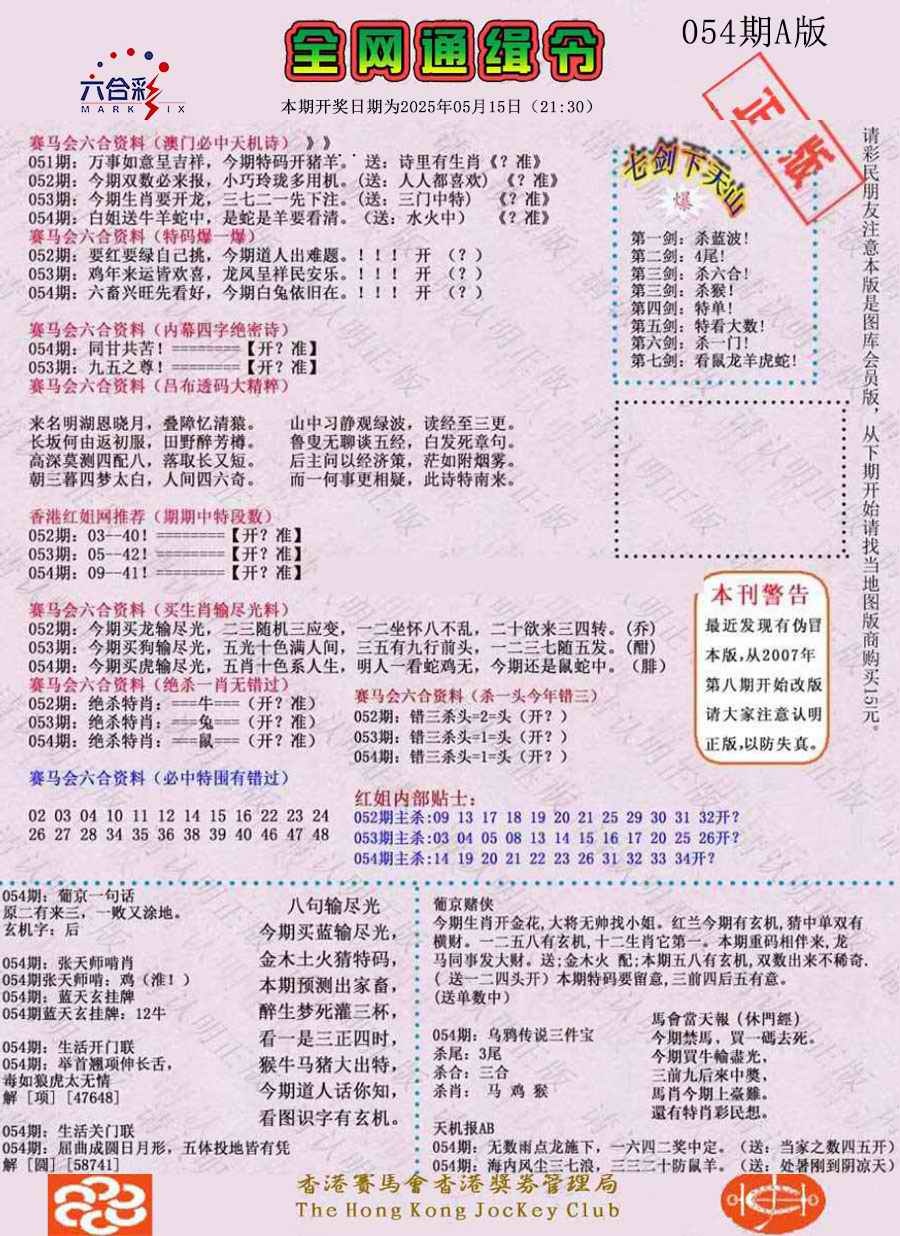 全网通缉令
054期A版
六合彩
MARK SIX
本期开奖日期为2025年05月15日（21:30）
正版
赛马会六合资料（澳门必中天机诗）》》
051期：万事如意呈吉祥，今期特码开猪羊。送：诗里有生肖《？准》
052期：今期双数必来报，小巧玲珑多用机。(送：人人都喜欢) 《？准》
053期：今期生肖要开龙，三七二一先下注。(送：三门中特) 《？准》
054期：白姐送牛羊蛇中，是蛇是羊要看清。（送：水火中） 《？准》
赛马会六合资料（特码爆一爆）
052期：要红要绿自己挑，今期道人出难题。！！！ 开 （？）
053期：鸡年来运皆欢喜，龙凤呈祥民安乐。！！！ 开 （？）
054期：六畜兴旺先看好，今期白兔依旧在。！！！ 开 （？）
赛马会六合资料（内幕四字绝密诗）
054期：同甘共苦！========【开？准】
053期：九五之尊！========【开？准】
赛马会六合资料（吕布透码大精粹）
来名明湖恩晓月，叠障忆清猿。 山中习静观绿波，读经至三更。
长坂何由返初服，田野醉芳樽。 鲁叟无聊谈五经，白发死章句。
高深莫测四配八，落取长又短。 后主问以经济策，茫如附烟雾。
朝三暮四梦太白，人间四六奇。 而一何事更相疑，此诗特南来。
香港红姐网推荐（期期中特段数）
052期：03--40！========【开？准】
053期：05--42！========【开？准】
054期：09--41！========【开？准】
赛马会六合资料（买生肖输尽光料）
052期：今期买龙输尽光，二三随机三应变，一二坐怀八不乱，二十欲来三四转。(乔)
053期：今期买狗输尽光，五光十色满人间，三五有九行前头，一二三七随五发。(酣)
054期：今期买虎输尽光，五肖十色系人生，明人一看蛇鸡无，今期还是鼠蛇中。（腓）
赛马会六合资料（绝杀一肖无错过）
052期：绝杀特肖：===牛===（开？准）
053期：绝杀特肖：===兔===（开？准）
054期：绝杀特肖：===鼠===（开？准）
赛马会六合资料（杀一头今年错三）
052期：错三杀头=2=头（开？）
053期：错三杀头=1=头（开？）
054期：错三杀头=1=头（开？）
赛马会六合资料（必中特围有错过）
02 03 04 10 11 12 14 15 16 22 23 24
26 27 28 34 35 36 38 39 40 46 47 48
红姐内部贴士：
052期主杀:09 13 17 18 19 20 21 25 29 30 31 32开？
053期主杀:03 04 05 08 13 14 15 16 17 20 25 26开？
054期主杀:14 19 20 21 22 23 26 31 32 33 34开？
七剑下天山
爆
第一剑：杀蓝波！
第二剑：4尾！
第三剑：杀六合！
第三剑：杀猴！
第四剑：特单！
第五剑：特看大数！
第六剑：杀一门！
第七剑：看鼠龙羊虎蛇！
请彩民朋友注意本版是图库会员版，从下期开始请找当地图版商购买15元。
本刊警告
最近发现有伪冒
本版，从2007年
第八期开始改版
请大家注意认明
正版，以防失真。
054期：葡京一句话
原二有来三，一败又涂地。
玄机字：后
054期：张天师啃肖
054期张天师啃：鸡（淮！）
054期：蓝天玄挂牌
054期蓝天玄挂牌：12牛
054期：生活开门联
054期：举首翘项伸长舌，
毒如狼虎太无情
解 [项] [47648]
054期：生活关门联
054期：屈曲成圆日月形，五体投地皆有凭
解 [圆] [58741]
八句输尽光
今期买蓝输尽光，
金木土火猜特码，
本期预测出家畜，
醉生梦死灌三杯，
看一是三正四时，
猴牛马猪大出特，
今期道人话你知，
看图识字有玄机。
葡京赌侠
今期生肖开金花，大将无帅找小姐。红兰今期有玄机，猜中单双有
横财。一二五八有玄机，十二生肖它第一。本期重码相伴来，龙
马同事发大财。送;金木火 配;本期五八有玄机，双数出来不稀奇.
( 送一二四头开) 本期特码要留意，三前四后五有意。
(送单数中)
054期：乌鸦传说三件宝
杀尾：3尾
杀合：三合
杀肖： 马 鸡 猴
馬會當天報（休門經）
今期禁馬，買一碼去死。
今期買牛輸盡光，
三前九后來中獎，
馬肖今期上臺難。
還有特肖彩民想。
天机报AB
054期：无数雨点龙施下，一六四二奖中定。（送：当家之数四五开）
054期：海内风尘三七浪，三三二十防鼠羊。（送：处暑刚到阴凉天）
香港賽馬會香港獎券管理局
The Hong Kong JocKey Club